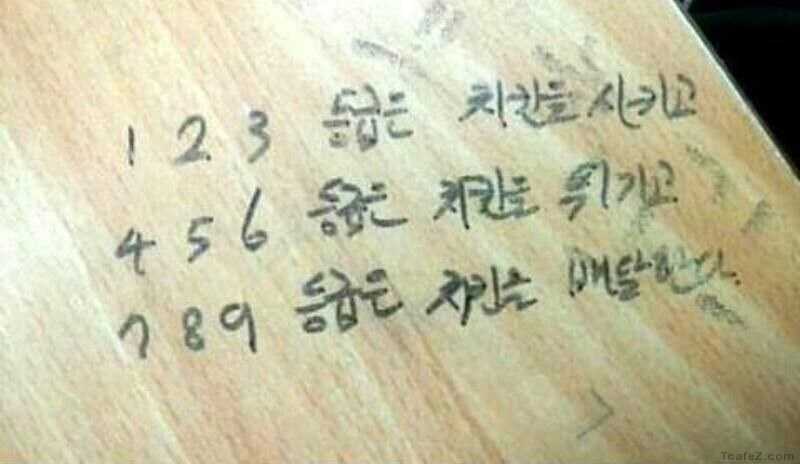 1 2 3 등급은 치킨을 시키고
4 5 6 등급은 치킨을 튀기고
7 8 9 등급은 치킨을 배달한다.
TcafeZ.com